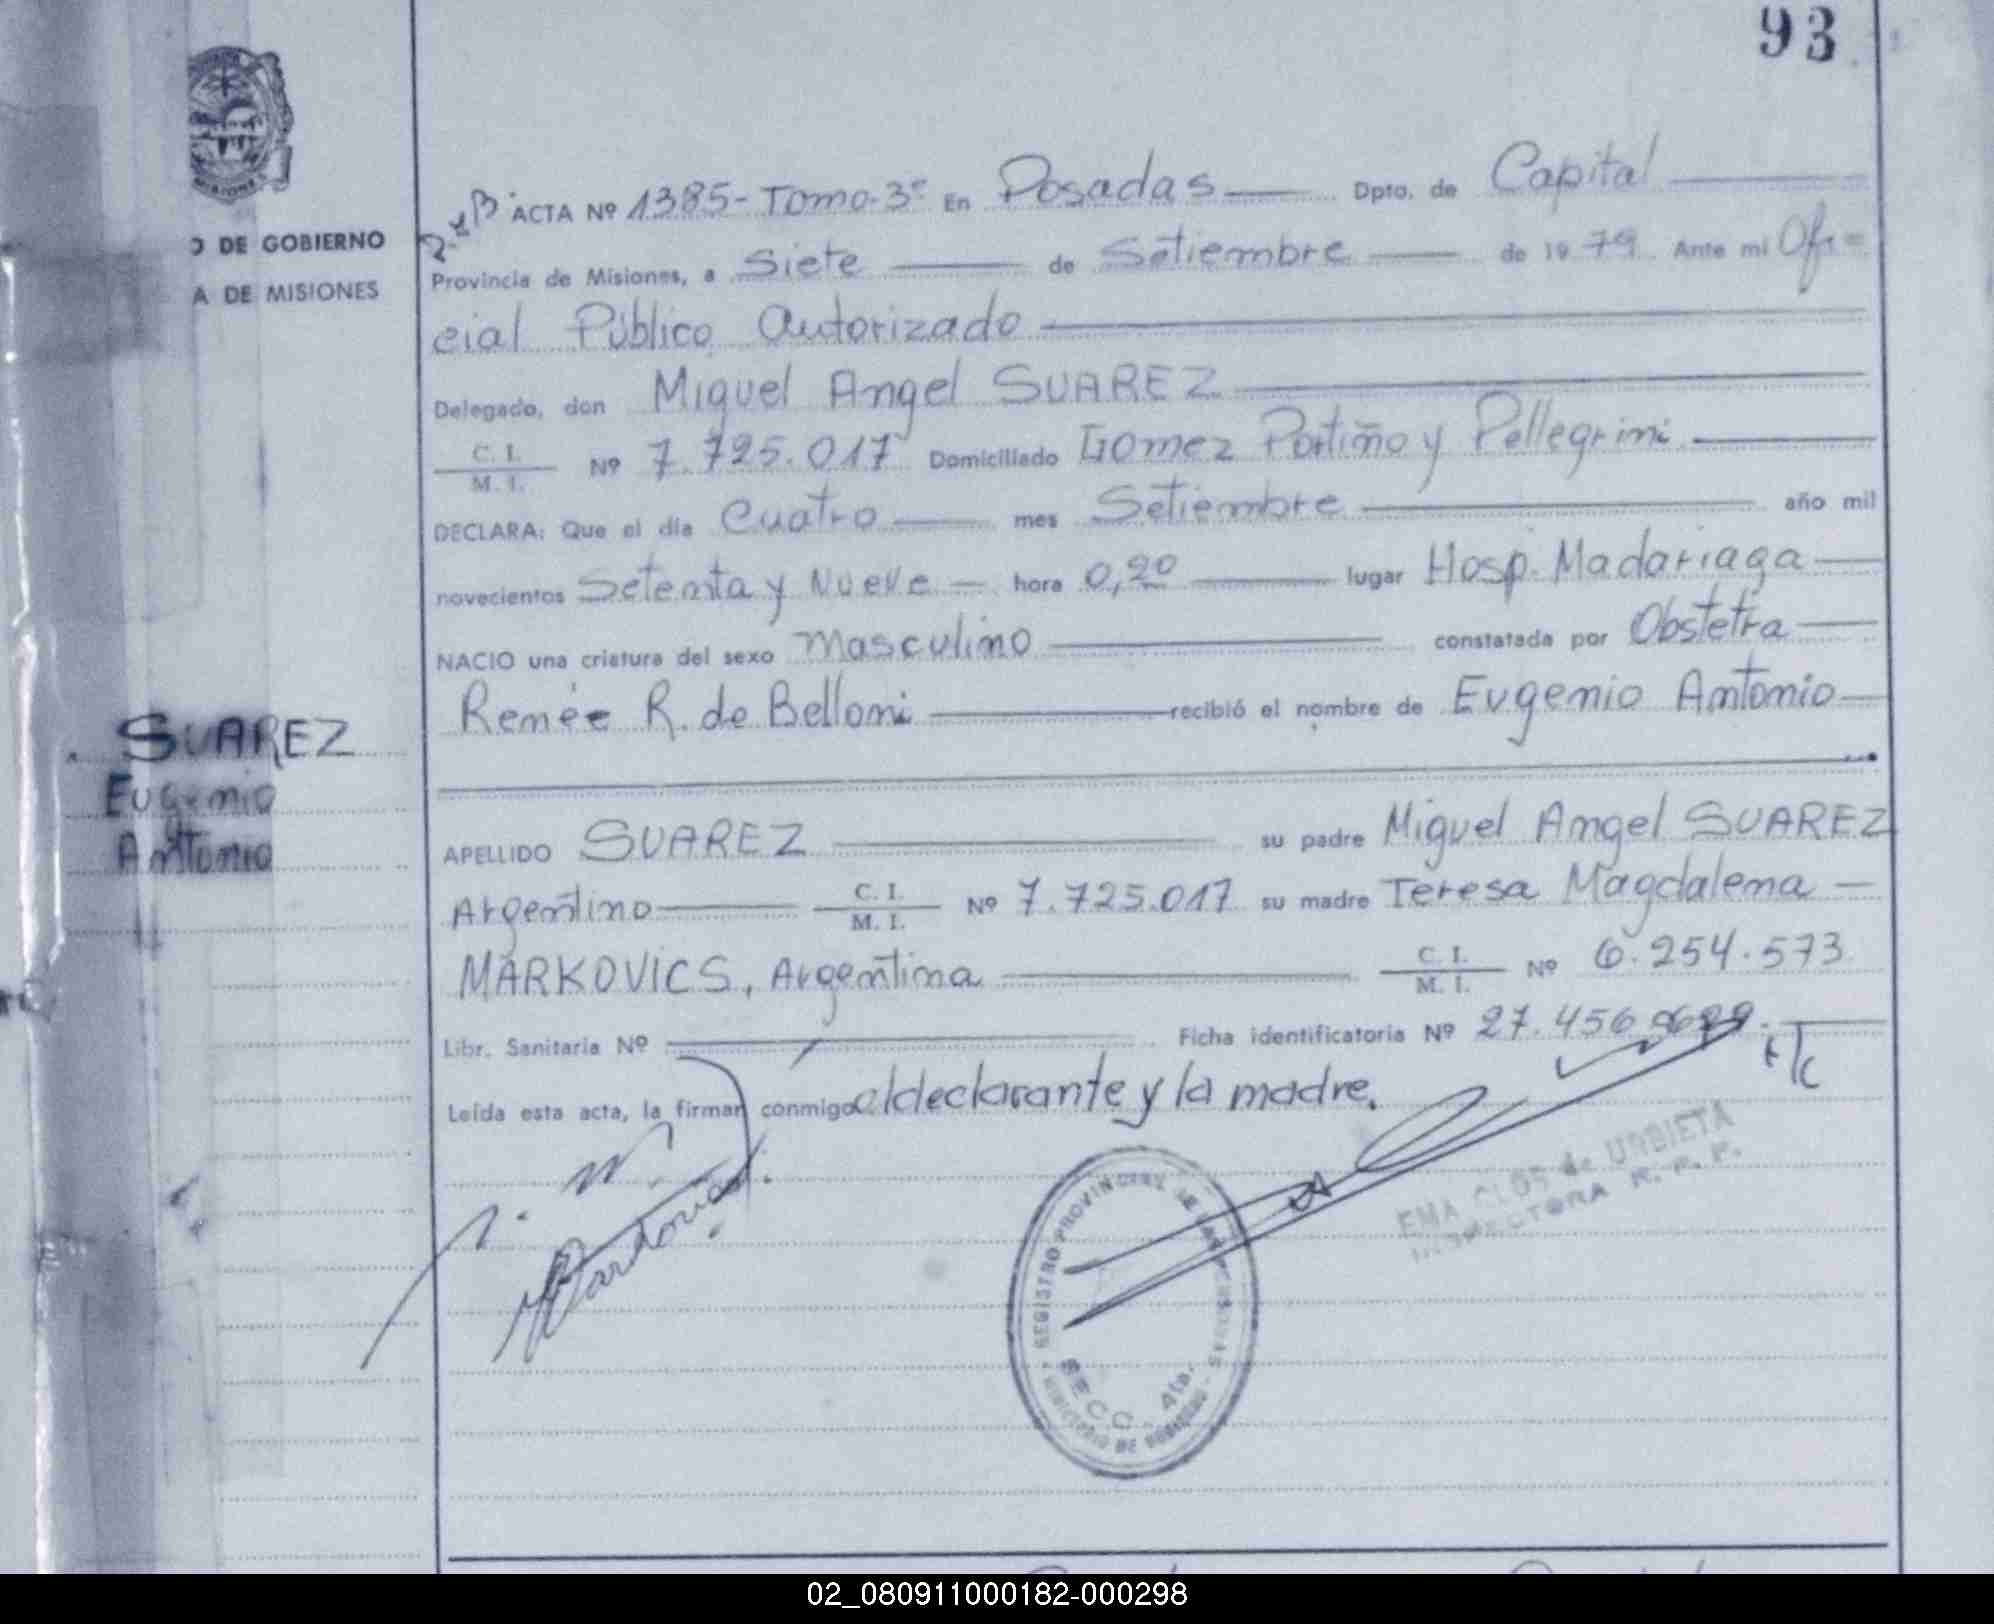 93
ACTA Nº 1385-Tomo-3º En Posadas Dpto. de Capital
DE GOBIERNO
A DE MISIONES
Provincia de Misiones, a Siete de Setiembre de 1979 Ante mi Ofi=
cial Público Autorizado
Delegado, don Miguel Angel SUAREZ
C. I.
M. I. Nº 7.725.017 Domiciliado Gomez Portiño y Pellegrini
DECLARA: Que el día Cuatro mes Setiembre año mil
novecientos Setenta y Nueve hora 0,20 lugar Hosp. Madariaga
NACIO una criatura del sexo Masculino constatada por Obstetra
Renée R. de Belloni recibió el nombre de Eugenio Antonio
SUAREZ
Eugenio
Antonio
APELLIDO SUAREZ su padre Miguel Angel SUAREZ
Argentino C. I.
M. I. Nº 7.725.017 su madre Teresa Magdalena
MARKOVICS, Argentina C. I.
M. I. Nº 6.254.573
Libr. Sanitaria Nº Ficha identificatoria Nº 27.456
Leída esta acta, la firman conmigo el declarante y la madre.
EMA CLOS de URBIETA
INSPECTORA R. P. P.
REGISTRO PROVINCIAL DE LAS PERSONAS
MINISTERIO DE GOBIERNO
SECC. 4ta.
02_080911000182-000298